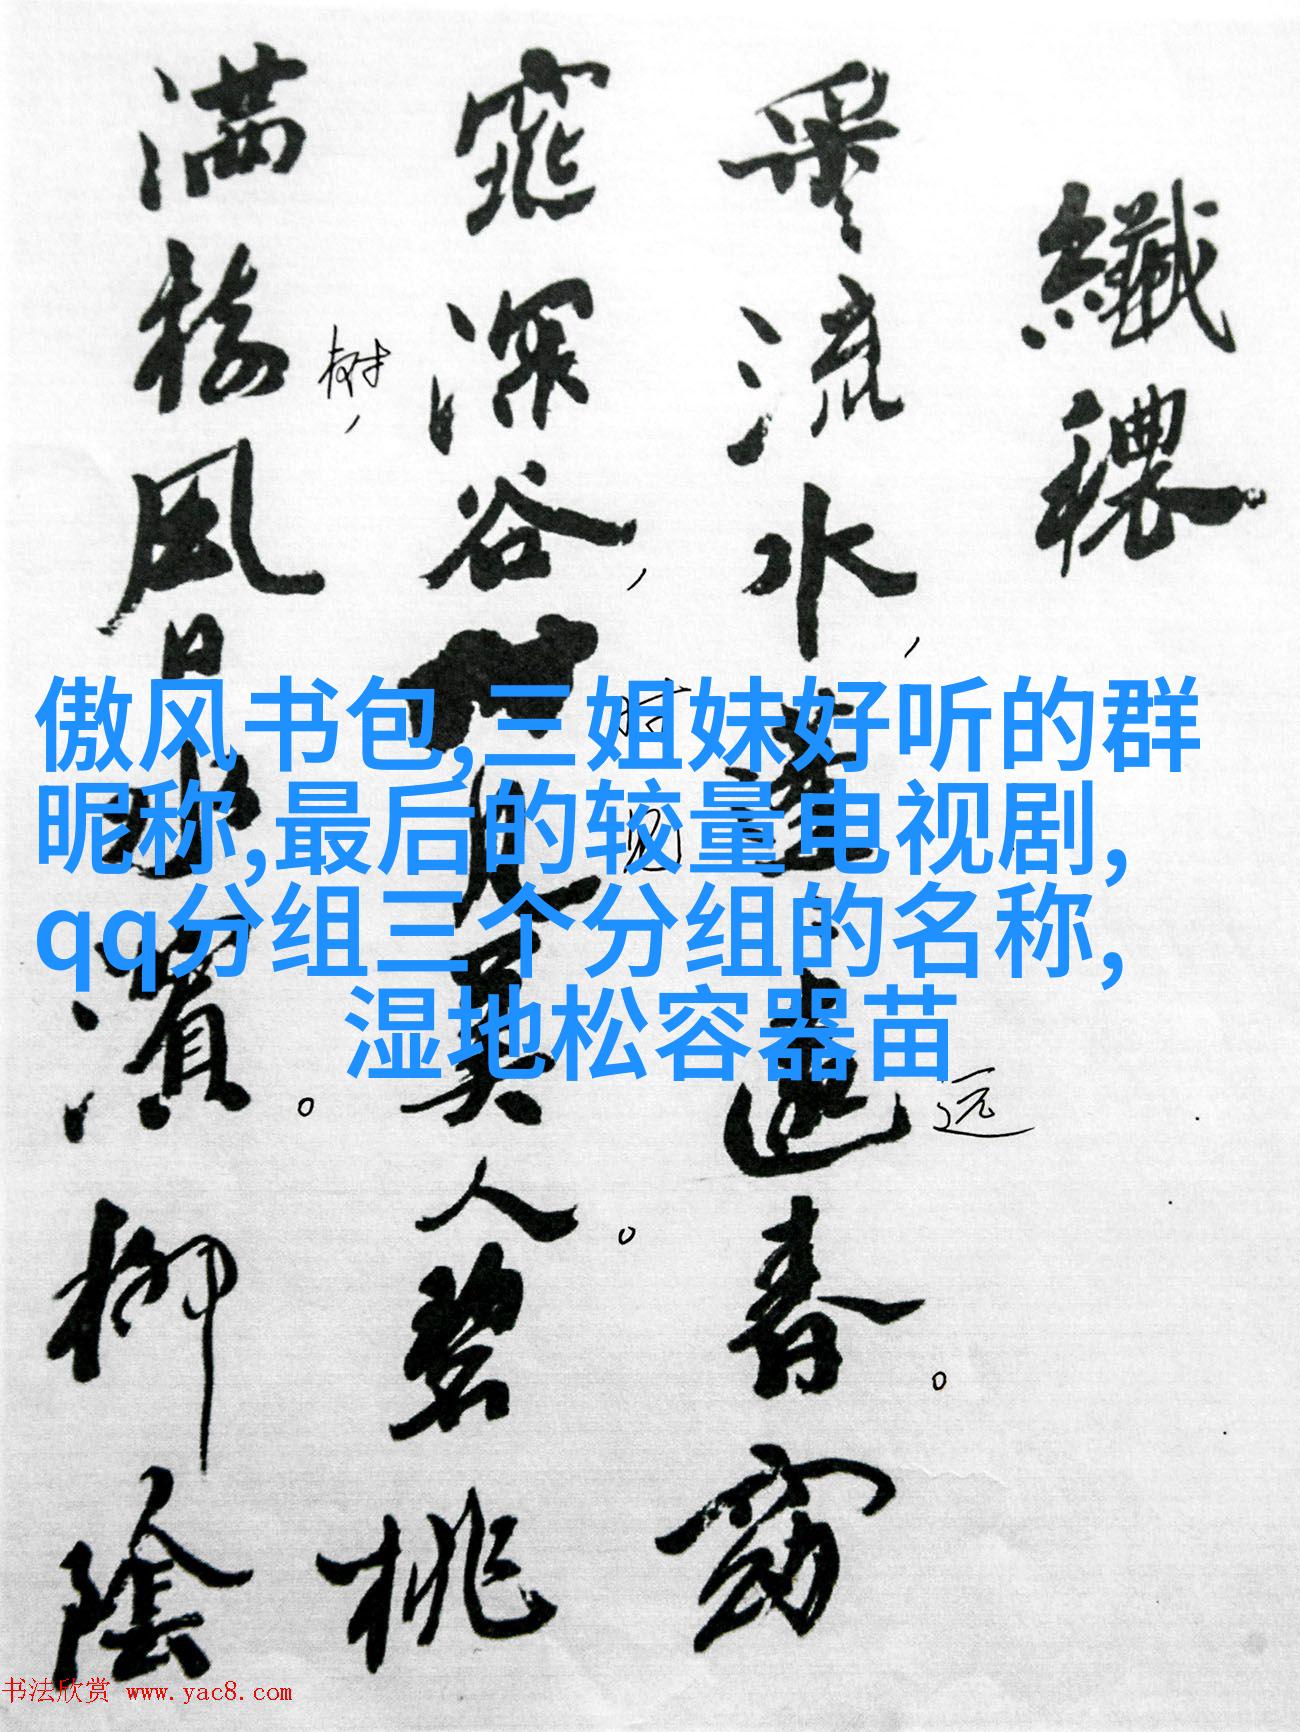 纖穠
采流水，蓬遠春。窈
远
窕深谷，見美人。碧桃
时
见
满樹風日水濱。柳陰
树，
傲风书包,三姐妹好听的群
昵称,最后的较量电视剧,
qq分组三个分组的名称,
湿地松容器苗
书法欣赏 www.yac8.com